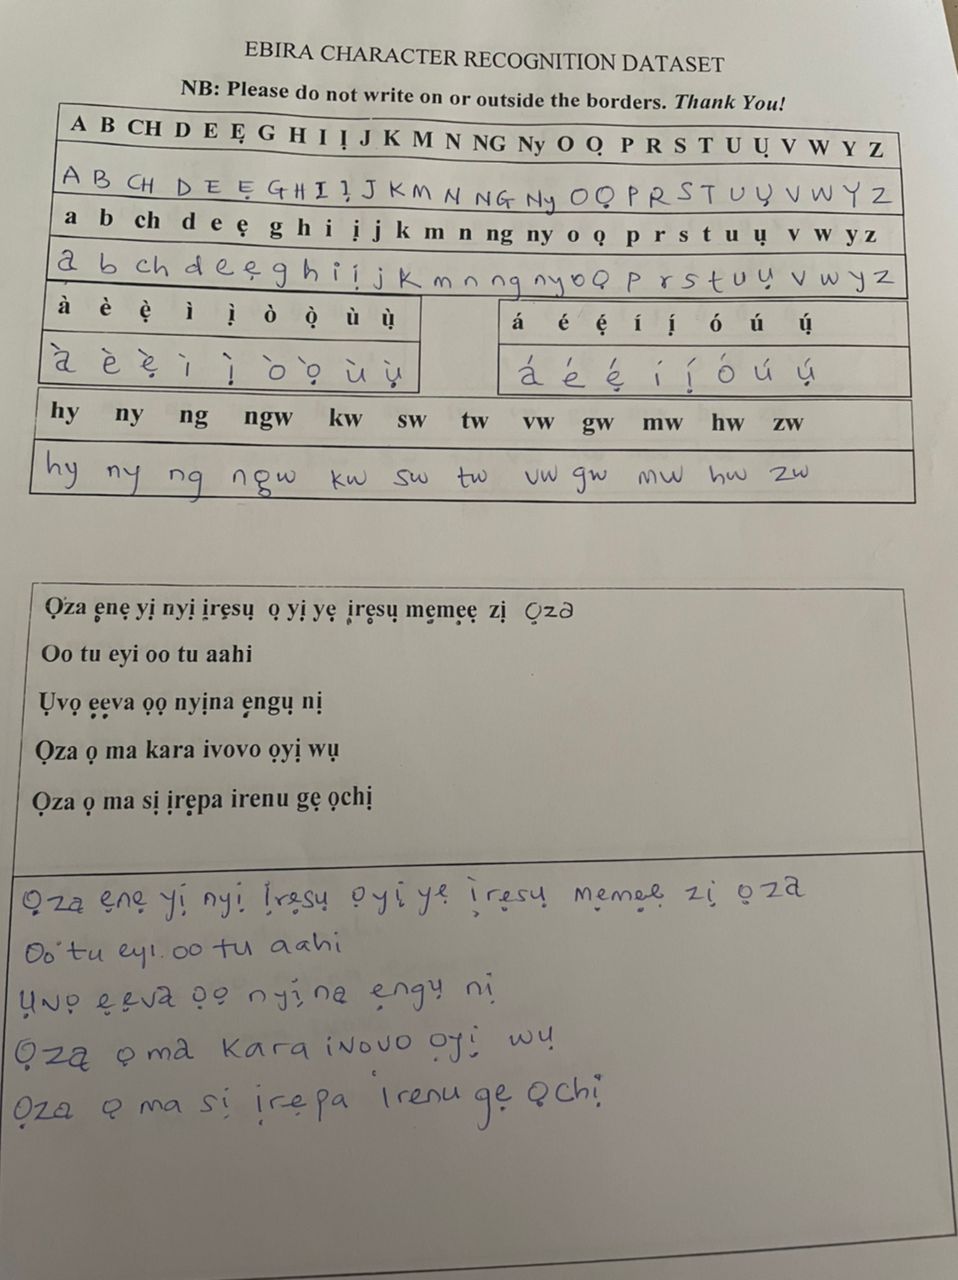 EBIRA CHARACTER RECOGNITION DATASET
NB: Please do not write on or outside the borders. Thank You!
A B CH D E Ẹ G H I Ị J K M N NG Ny O Ọ P R S T U Ụ V W Y Z
A B CH D E Ẹ G H I Ị J K M N NG Ny O Ọ P R S T U Ụ V W Y Z
a b ch d e ẹ g h i ị j k m n ng ny o ọ p r s t u ụ v w y z
a b ch d e ẹ g h i ị j k m n ng ny o ọ p r s t u ụ v w y z
à è ẹ̀ ì ị̀ ò ọ̀ ù ụ̀
á é ẹ́ í ị́ ó ú ụ́
à è ẹ̀ ì ị̀ ò ọ̀ ù ụ̀
á é ẹ́ í ị́ ó ú ụ́
hy ny ng ngw kw sw tw vw gw mw hw zw
hy ny ng ngw kw sw tw vw gw mw hw zw
Ọza ẹnẹ yị nyị ịrẹsụ ọ yị yẹ ịrẹsụ mẹmẹẹ zị ọza
Oo tu eyi oo tu aahi
Ụvọ ẹẹva ọọ nyịna ẹngụ nị
Ọza ọ ma kara ivovo ọyị wụ
Ọza ọ ma sị ịrẹpa irenu gẹ ọchị
Ọzạ ẹnẹ yị nyị ịrẹsụ ọyị yẹ ịrẹsụ mẹmẹẹ zị ọza
Oo tu eyi. oo tu aahi
Ụvọ ẹẹva ọọ nyịnạ ẹngụ nị
Ọzạ ọ ma kara ivovo ọyị wụ
Ọza ọ ma sị ịrẹpa irenu gẹ ọchị